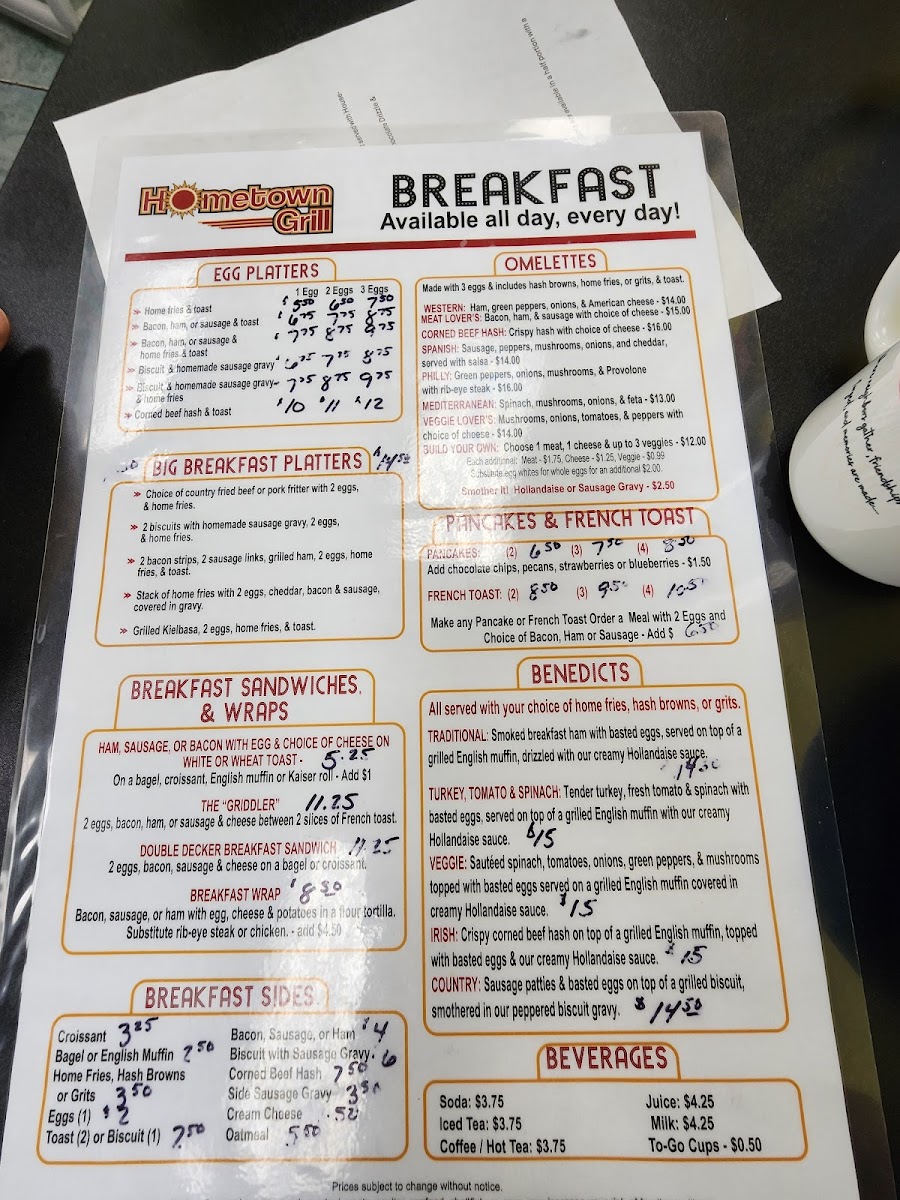 served with House-
ocolate Drizzle &
available in a half portion with a
Hometown
Grill
BREAKFAST
Available all day, every day!
EGG PLATTERS
1 Egg 2 Eggs 3 Eggs
» Home fries & toast $5.50 6.50 7.50
» Bacon, ham, or sausage & toast $6.75 7.75 8.75
» Bacon, ham, or sausage &
home fries & toast $7.75 8.75 9.75
» Biscuit & homemade sausage gravy 6.75 7.75 8.75
» Biscuit & homemade sausage gravy
& home fries 7.75 8.75 9.75
» Corned beef hash & toast $10 $11 $12
BIG BREAKFAST PLATTERS $14.50
» Choice of country fried beef or pork fritter with 2 eggs,
& home fries.
» 2 biscuits with homemade sausage gravy, 2 eggs,
& home fries.
» 2 bacon strips, 2 sausage links, grilled ham, 2 eggs, home
fries, & toast.
» Stack of home fries with 2 eggs, cheddar, bacon & sausage,
covered in gravy.
» Grilled Kielbasa, 2 eggs, home fries, & toast.
BREAKFAST SANDWICHES,
& WRAPS
HAM, SAUSAGE, OR BACON WITH EGG & CHOICE OF CHEESE ON
WHITE OR WHEAT TOAST - 5.25
On a bagel, croissant, English muffin or Kaiser roll - Add $1
THE "GRIDDLER" 11.25
2 eggs, bacon, ham, or sausage & cheese between 2 slices of French toast.
DOUBLE DECKER BREAKFAST SANDWICH 11.25
2 eggs, bacon, sausage & cheese on a bagel or croissant.
BREAKFAST WRAP $8.50
Bacon, sausage, or ham with egg, cheese & potatoes in a flour tortilla.
Substitute rib-eye steak or chicken. - add $4.50
BREAKFAST SIDES
Croissant 3.25
Bagel or English Muffin 2.50
Home Fries, Hash Browns
or Grits 3.50
Eggs (1) $2
Toast (2) or Biscuit (1) 2.50
Bacon, Sausage, or Ham $4
Biscuit with Sausage Gravy. 6
Corned Beef Hash 7.50
Side Sausage Gravy 3.50
Cream Cheese .50
Oatmeal 5.50
OMELETTES
Made with 3 eggs & includes hash browns, home fries, or grits, & toast.
WESTERN: Ham, green peppers, onions, & American cheese - $14.00
MEAT LOVER'S: Bacon, ham, & sausage with choice of cheese - $15.00
CORNED BEEF HASH: Crispy hash with choice of cheese - $16.00
SPANISH: Sausage, peppers, mushrooms, onions, and cheddar,
served with salsa - $14.00
PHILLY: Green peppers, onions, mushrooms, & Provolone
with rib-eye steak - $16.00
MEDITERRANEAN: Spinach, mushrooms, onions, & feta - $13.00
VEGGIE LOVER'S: Mushrooms, onions, tomatoes, & peppers with
choice of cheese - $14.00
BUILD YOUR OWN: Choose 1 meat, 1 cheese & up to 3 veggies - $12.00
Each additional: Meat - $1.75, Cheese - $1.25, Veggie - $0.99
Substitute egg whites for whole eggs for an additional $2.00.
Smother It! Hollandaise or Sausage Gravy - $2.50
PANCAKES & FRENCH TOAST
PANCAKES: (2) 6.50 (3) 7.50 (4) 8.50
Add chocolate chips, pecans, strawberries or blueberries - $1.50
FRENCH TOAST: (2) 8.50 (3) 9.50 (4) 10.50
Make any Pancake or French Toast Order a Meal with 2 Eggs and
Choice of Bacon, Ham or Sausage - Add $ 6.50
BENEDICTS
All served with your choice of home fries, hash browns, or grits.
TRADITIONAL: Smoked breakfast ham with basted eggs, served on top of a
grilled English muffin, drizzled with our creamy Hollandaise sauce.
14.50
TURKEY, TOMATO & SPINACH: Tender turkey, fresh tomato & spinach with
basted eggs, served on top of a grilled English muffin with our creamy
Hollandaise sauce. $15
VEGGIE: Sautéed spinach, tomatoes, onions, green peppers, & mushrooms
topped with basted eggs served on a grilled English muffin covered in
creamy Hollandaise sauce. $15
IRISH: Crispy corned beef hash on top of a grilled English muffin, topped
with basted eggs & our creamy Hollandaise sauce. $15
COUNTRY: Sausage patties & basted eggs on top of a grilled biscuit,
smothered in our peppered biscuit gravy. $14.50
BEVERAGES
Soda: $3.75
Iced Tea: $3.75
Coffee / Hot Tea: $3.75
Juice: $4.25
Milk: $4.25
To-Go Cups - $0.50
Prices subject to change without notice.
gather, friendships
and memories are made